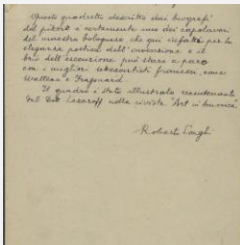 Questo quadretto descritto dai biografi
del pittore è certamente uno dei capolavori
del maestro bolognese che qui rifatto per la
eleganza poetica dell'invenzione e il
brio dell'esecuzione può stare a paro
con i migliori settecentisti francesi, come
Watteau e Fragonard.
Il quadro è stato illustrato recentemente
dal Dott. Lazareff nella rivista "Art in America".
Roberto Longhi